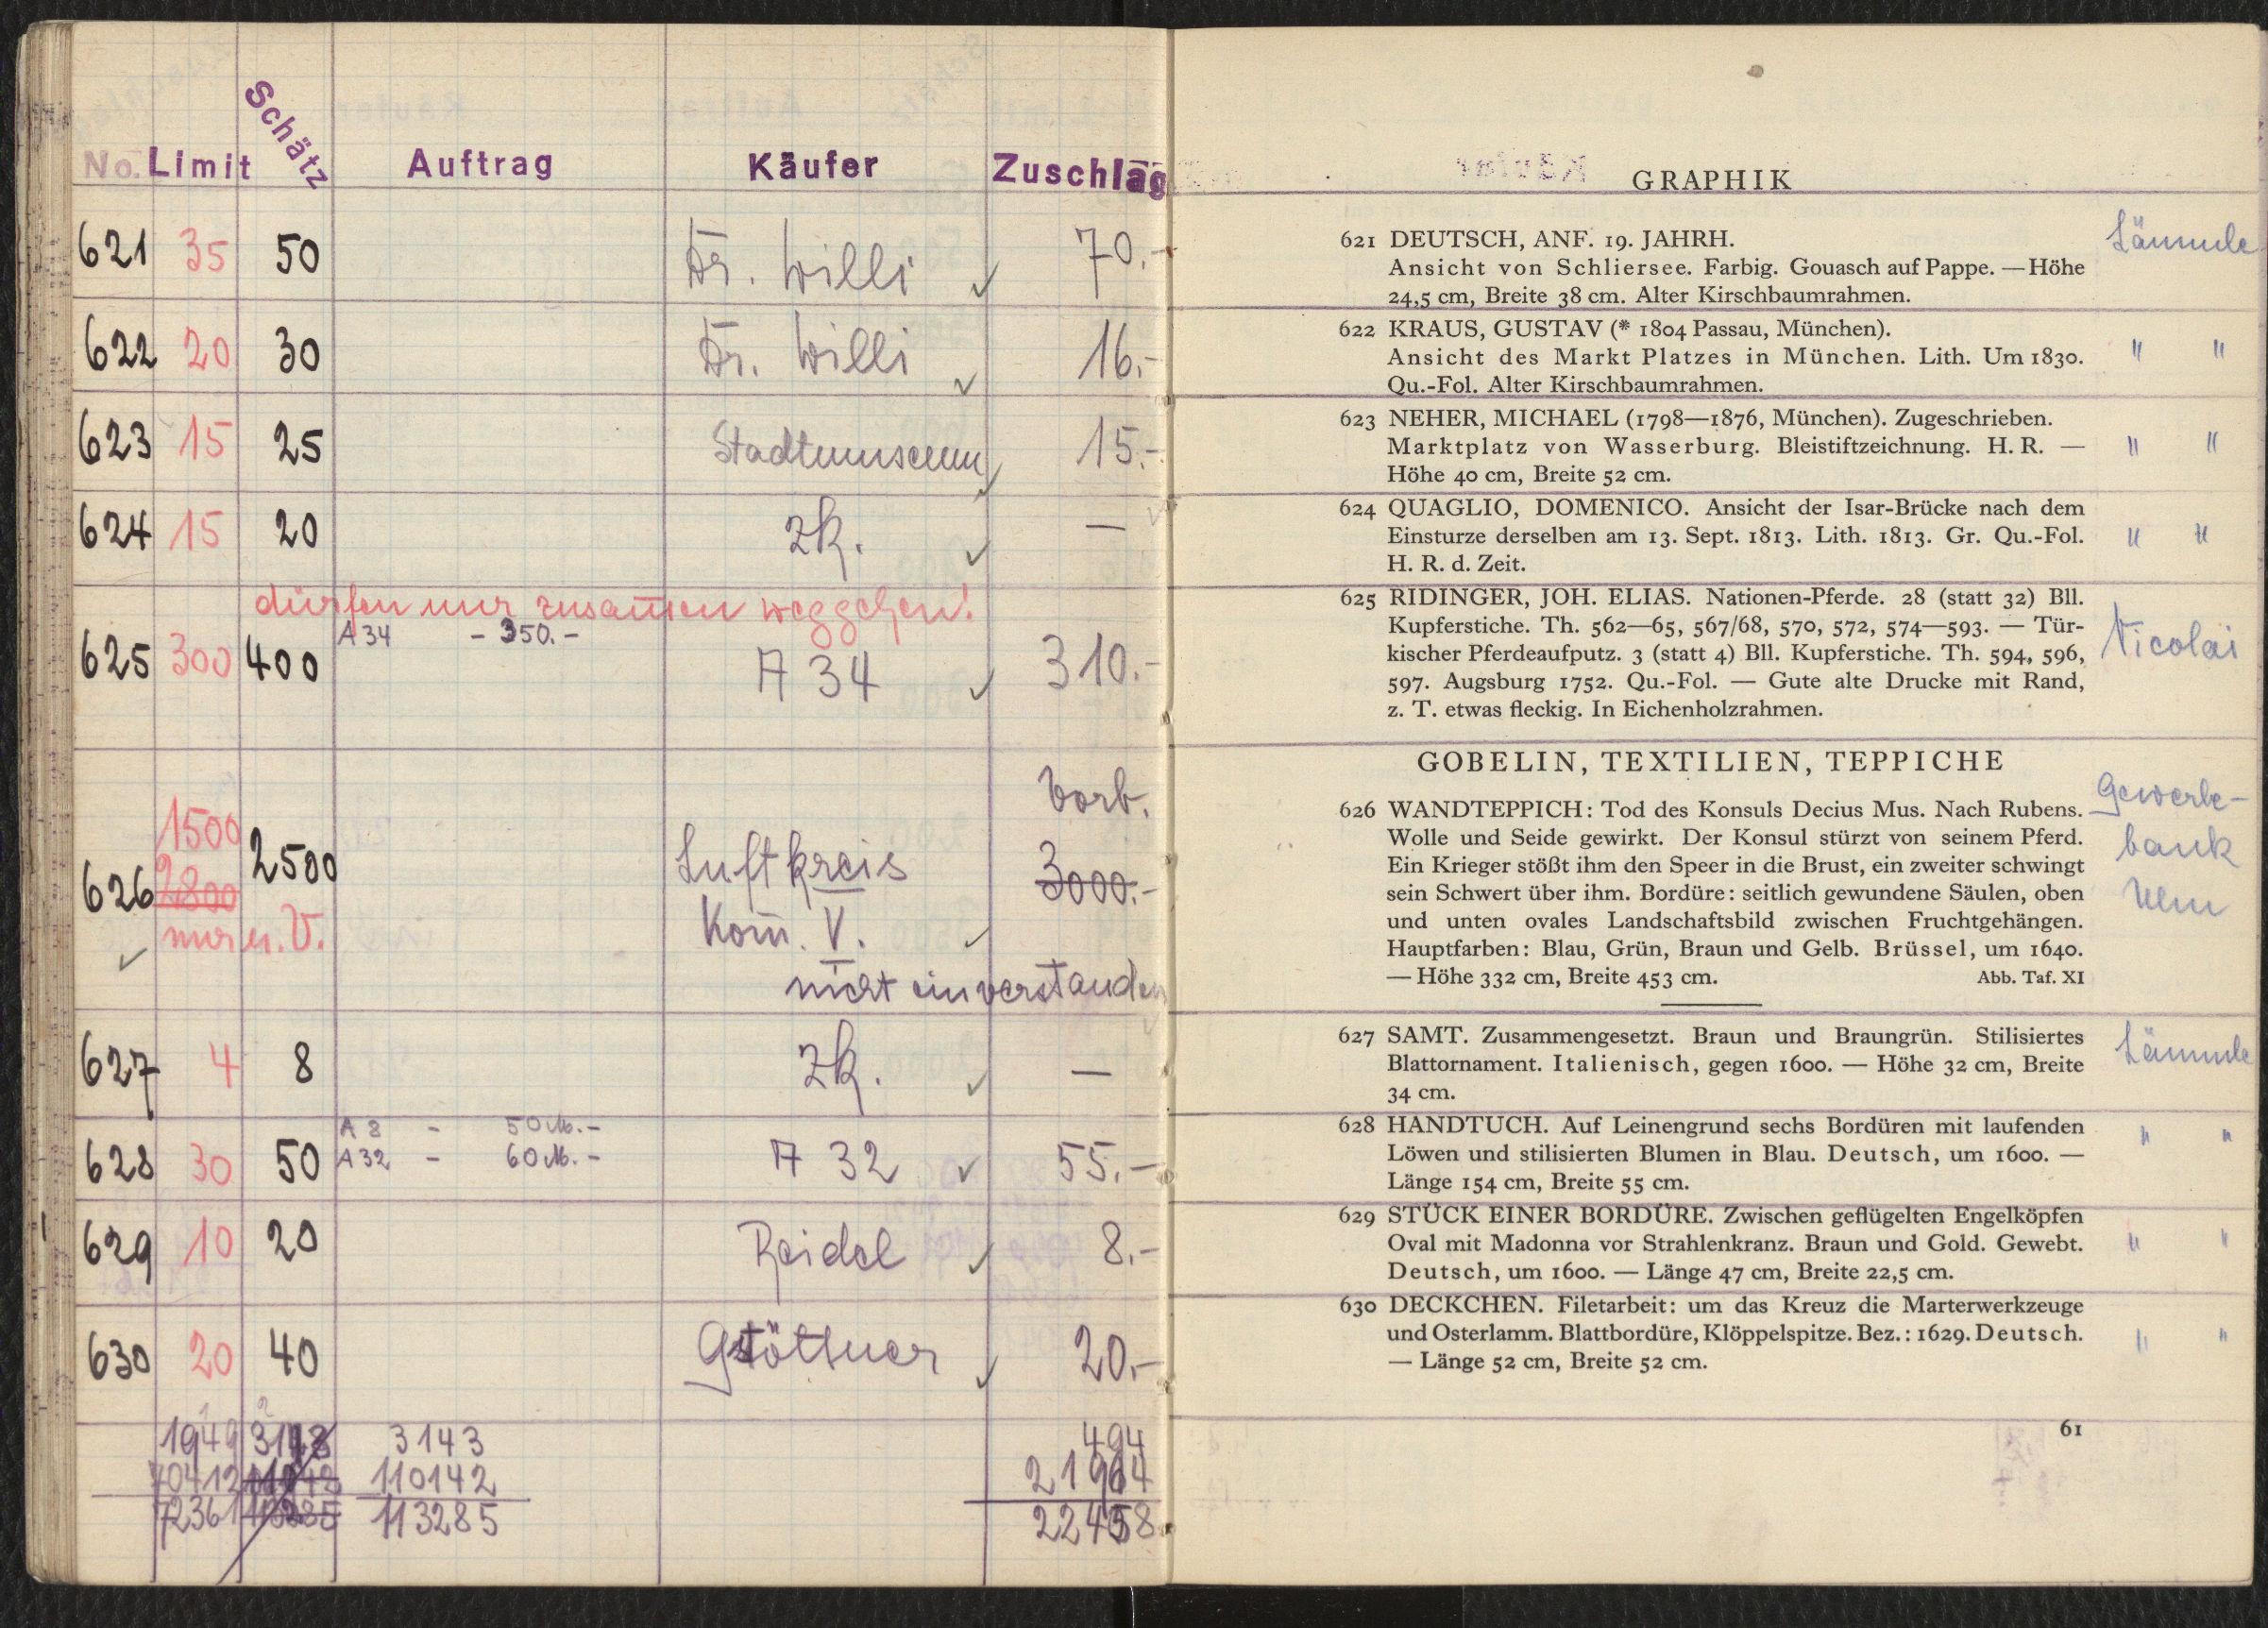 No. Limit Schätz Auftrag Käufer Zuschlag
621 35 50 Dr. Willi ✓ 70.-
622 20 30 Dr. Willi ✓ 16.-
623 15 25 Stadtmuseum ✓ 15.-
624 15 20 zk. ✓ —
dürfen nur zusam̄en weggehen!
A 34 - 350.-
625 300 400 A 34 ✓ 310.-
Vorb.
1500
626 2800 2500 Luftkreis 3000.-
nur u. V. Kom̄. V. ✓
✓ nicht einverstanden
627 4 8 zk. ✓ —
A 8 - 50 M.-
628 30 50 A 32 - 60 M.- A 32 ✓ 55.-
629 10 20 Reidel ✓ 8.-
630 20 40 Gstöttner ✓ 20.-
1949 3143 3143 494
70412 110142 110142 21964
72361 113285 113285 22458
GRAPHIK
621 DEUTSCH, ANF. 19. JAHRH. Lämmle
Ansicht von Schliersee. Farbig. Gouasch auf Pappe. — Höhe
24,5 cm, Breite 38 cm. Alter Kirschbaumrahmen.
622 KRAUS, GUSTAV (* 1804 Passau, München).
Ansicht des Markt Platzes in München. Lith. Um 1830. " "
Qu.-Fol. Alter Kirschbaumrahmen.
623 NEHER, MICHAEL (1798—1876, München). Zugeschrieben.
Marktplatz von Wasserburg. Bleistiftzeichnung. H. R. — " "
Höhe 40 cm, Breite 52 cm.
624 QUAGLIO, DOMENICO. Ansicht der Isar-Brücke nach dem
Einsturze derselben am 13. Sept. 1813. Lith. 1813. Gr. Qu.-Fol. " "
H. R. d. Zeit.
625 RIDINGER, JOH. ELIAS. Nationen-Pferde. 28 (statt 32) Bll.
Kupferstiche. Th. 562—65, 567/68, 570, 572, 574—593. — Tür-
kischer Pferdeaufputz. 3 (statt 4) Bll. Kupferstiche. Th. 594, 596, Nicolai
597. Augsburg 1752. Qu.-Fol. — Gute alte Drucke mit Rand,
z. T. etwas fleckig. In Eichenholzrahmen.
GOBELIN, TEXTILIEN, TEPPICHE
626 WANDTEPPICH: Tod des Konsuls Decius Mus. Nach Rubens. Gewerbe-
Wolle und Seide gewirkt. Der Konsul stürzt von seinem Pferd. bank
Ein Krieger stößt ihm den Speer in die Brust, ein zweiter schwingt
sein Schwert über ihm. Bordüre: seitlich gewundene Säulen, oben Ulm
und unten ovales Landschaftsbild zwischen Fruchtgehängen.
Hauptfarben: Blau, Grün, Braun und Gelb. Brüssel, um 1640.
— Höhe 332 cm, Breite 453 cm. Abb. Taf. XI
627 SAMT. Zusammengesetzt. Braun und Braungrün. Stilisiertes Lämmle
Blattornament. Italienisch, gegen 1600. — Höhe 32 cm, Breite
34 cm.
628 HANDTUCH. Auf Leinengrund sechs Bordüren mit laufenden " "
Löwen und stilisierten Blumen in Blau. Deutsch, um 1600. —
Länge 154 cm, Breite 55 cm.
629 STÜCK EINER BORDÜRE. Zwischen geflügelten Engelköpfen
Oval mit Madonna vor Strahlenkranz. Braun und Gold. Gewebt. " "
Deutsch, um 1600. — Länge 47 cm, Breite 22,5 cm.
630 DECKCHEN. Filetarbeit: um das Kreuz die Marterwerkzeuge
und Osterlamm. Blattbordüre, Klöppelspitze. Bez.: 1629. Deutsch. " "
— Länge 52 cm, Breite 52 cm.
61